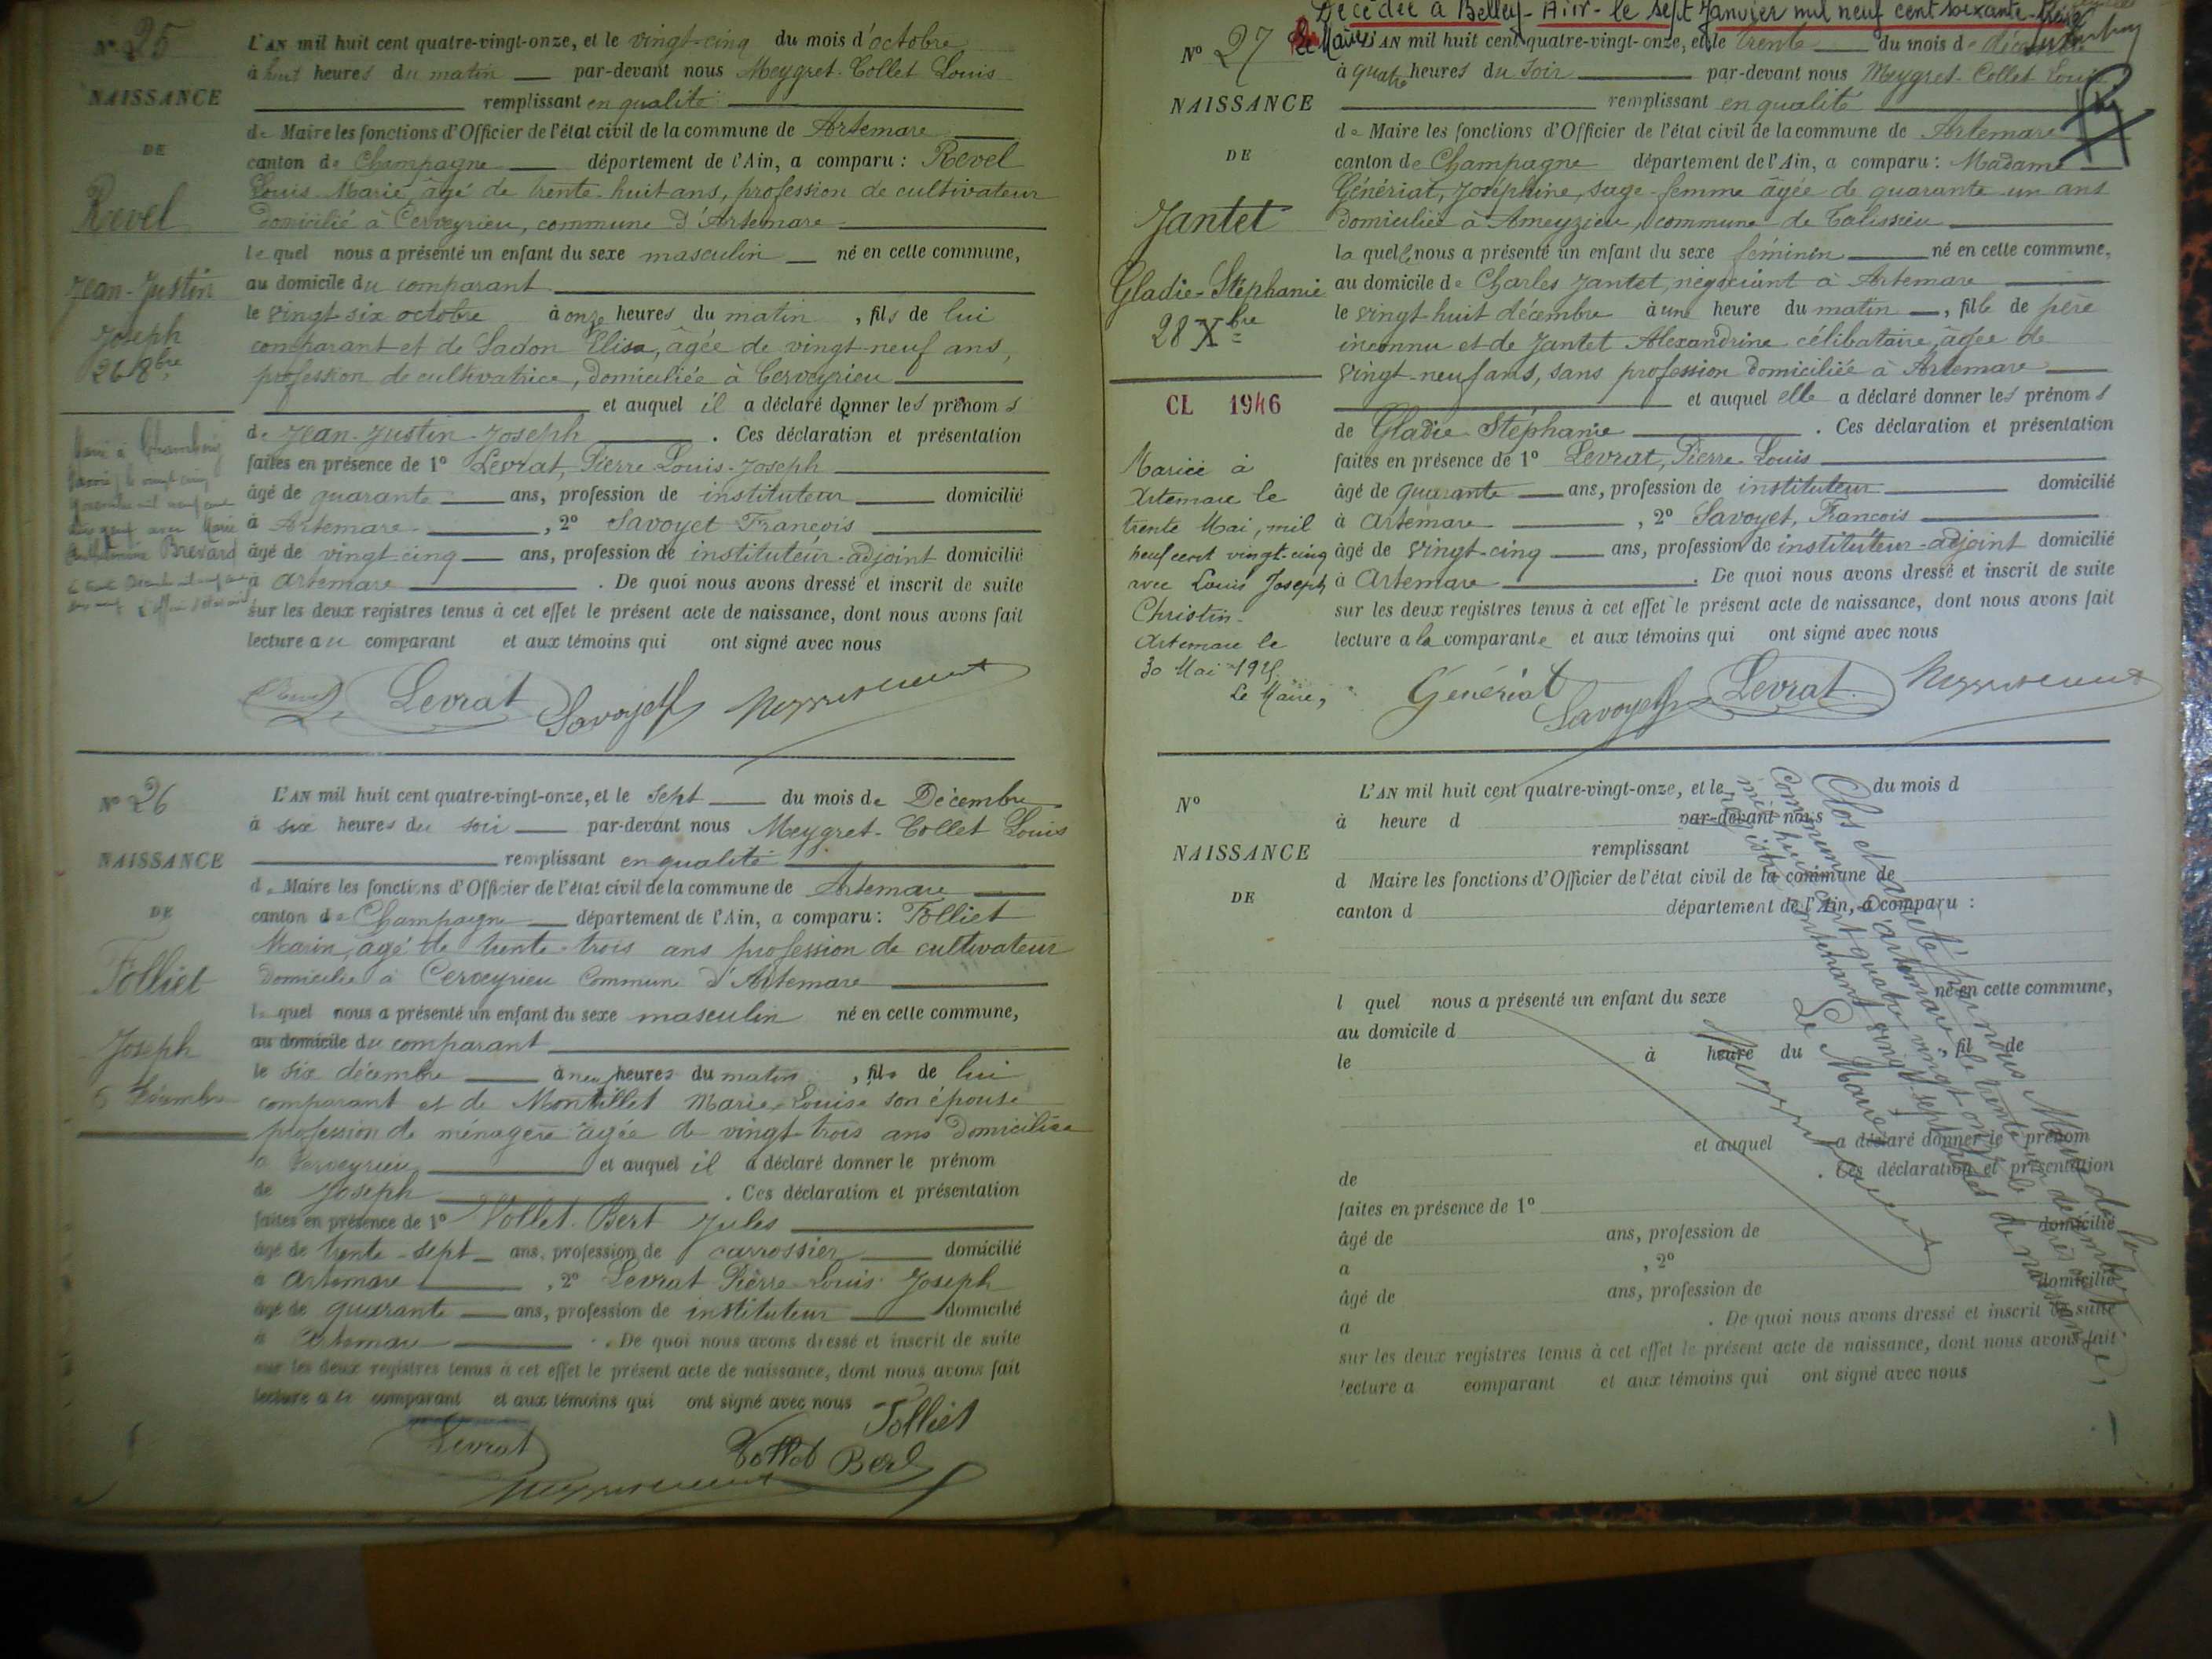 N° 25
NAISSANCE
DE
Revel
Jean-Justin
Joseph
26 8bre
L'AN mil huit cent quatre-vingt-onze, et le vingt-cinq du mois d'octobre
à huit heures du matin par-devant nous Meygret-Collet Louis
remplissant en qualité
de Maire les fonctions d'Officier de l'état civil de la commune de Artemare
canton de Champagne département de l'Ain, a comparu : Revel
Louis-Marie, âgé de trente-huit ans, profession de cultivateur
domicilié à Cerveyrieu, commune d'Artemare
lequel nous a présenté un enfant du sexe masculin né en cette commune,
au domicile du comparant
le vingt-six octobre à onze heures du matin, fils de lui
comparant et de Sadon Elisa, âgée de vingt-neuf ans,
profession de cultivatrice, domiciliée à Cerveyrieu
et auquel il a déclaré donner les prénoms
de Jean-Justin-Joseph. Ces déclaration et présentation
faites en présence de 1° Levrat, Pierre Louis-Joseph
âgé de quarante ans, profession de instituteur domicilié
à Artemare, 2° Savoyet François
âgé de vingt-cinq ans, profession de instituteur-adjoint domicilié
à Artemare. De quoi nous avons dressé et inscrit de suite
sur les deux registres tenus à cet effet le présent acte de naissance, dont nous avons fait
lecture au comparant et aux témoins qui ont signé avec nous
Marié à Chambéry
Savoie, le vingt cinq
mil neuf cent
dix neuf avec Marie
Brevard
Levrat Savoyet
N° 26
NAISSANCE
DE
Folliet
Joseph
6 Décembre
L'AN mil huit cent quatre-vingt-onze, et le sept du mois de Décembre
à six heures du soir par-devant nous Meygret-Collet Louis
remplissant en qualité
de Maire les fonctions d'Officier de l'état civil de la commune de Artemare
canton de Champagne département de l'Ain, a comparu : Folliet
Marin, agé de trente-trois ans profession de cultivateur
domicilié à Cerveyrieu Commune d'Artemare
lequel nous a présenté un enfant du sexe masculin né en cette commune,
au domicile du comparant
le six décembre à neuf heures du matin, fils de lui
comparant et de Montillet Marie-Louise son épouse
profession de ménagère agée de vingt-trois ans domiciliée
à Cerveyrieu et auquel il a déclaré donner le prénom
de Joseph. Ces déclaration et présentation
faites en présence de 1° Vollet-Bert Jules
âgé de trente-sept ans, profession de carrossier domicilié
à Artemare, 2° Levrat Pierre-Louis Joseph
âgé de quarante ans, profession de instituteur domicilié
à Artemare. De quoi nous avons dressé et inscrit de suite
sur les deux registres tenus à cet effet le présent acte de naissance, dont nous avons fait
lecture au comparant et aux témoins qui ont signé avec nous
Folliet
Levrat Vollet Bert
Décédée à Belley-Ain-le sept Janvier mil neuf cent soixante-treize
Le Maire
N° 27
NAISSANCE
DE
Jantet
Gladie-Stéphanie
28 Xbre
CL 1946
Mariée à
Artemare le
trente Mai, mil
neuf cent vingt-cinq
avec Louis Joseph
Christin-
Artemare le
30 Mai 1925
Le Maire,
L'AN mil huit cent quatre-vingt-onze, et le trente du mois de décembre
à quatre heures du soir par-devant nous Meygret-Collet Louis
remplissant en qualité
de Maire les fonctions d'Officier de l'état civil de la commune de Artemare
canton de Champagne département de l'Ain, a comparu : Madame
Génériat, Joséphine, sage-femme âgée de quarante-un ans
domiciliée à Ameyzieu, commune de Talissieu
laquelle nous a présenté un enfant du sexe féminin né en cette commune,
au domicile de Charles Jantet, négociant à Artemare
le vingt-huit décembre à une heure du matin, fille de père
inconnu et de Jantet Alexandrine célibataire, âgée de
vingt-neuf ans, sans profession domiciliée à Artemare
et auquel elle a déclaré donner les prénoms
de Gladie Stéphanie. Ces déclaration et présentation
faites en présence de 1° Levrat, Pierre-Louis
âgé de quarante ans, profession de instituteur domicilié
à Artemare, 2° Savoyet, François
âgé de vingt-cinq ans, profession de instituteur-adjoint domicilié
à Artemare. De quoi nous avons dressé et inscrit de suite
sur les deux registres tenus à cet effet le présent acte de naissance, dont nous avons fait
lecture a la comparante et aux témoins qui ont signé avec nous
Génériat Savoyet Levrat
N°
NAISSANCE
DE
L'AN mil huit cent quatre-vingt-onze, et le du mois d
à heure d par-devant nous
remplissant
d Maire les fonctions d'Officier de l'état civil de la commune de
canton d département de l'Ain, a comparu :
l quel nous a présenté un enfant du sexe né en cette commune,
au domicile d
le à heure du, fil de
et auquel a déclaré donner le prénom
de. Ces déclaration et présentation
faites en présence de 1°
âgé de ans, profession de domicilié
à, 2°
âgé de ans, profession de domicilié
a. De quoi nous avons dressé et inscrit de suite
sur les deux registres tenus à cet effet le présent acte de naissance, dont nous avons fait
lecture a comparant et aux témoins qui ont signé avec nous
Clos et arrêté par nous Maire de la
commune d'Artemare le trente-un décembre
mil huit cent quatre vingt onze le présent
registre contenant vingt-sept actes de naissance,
Le Maire